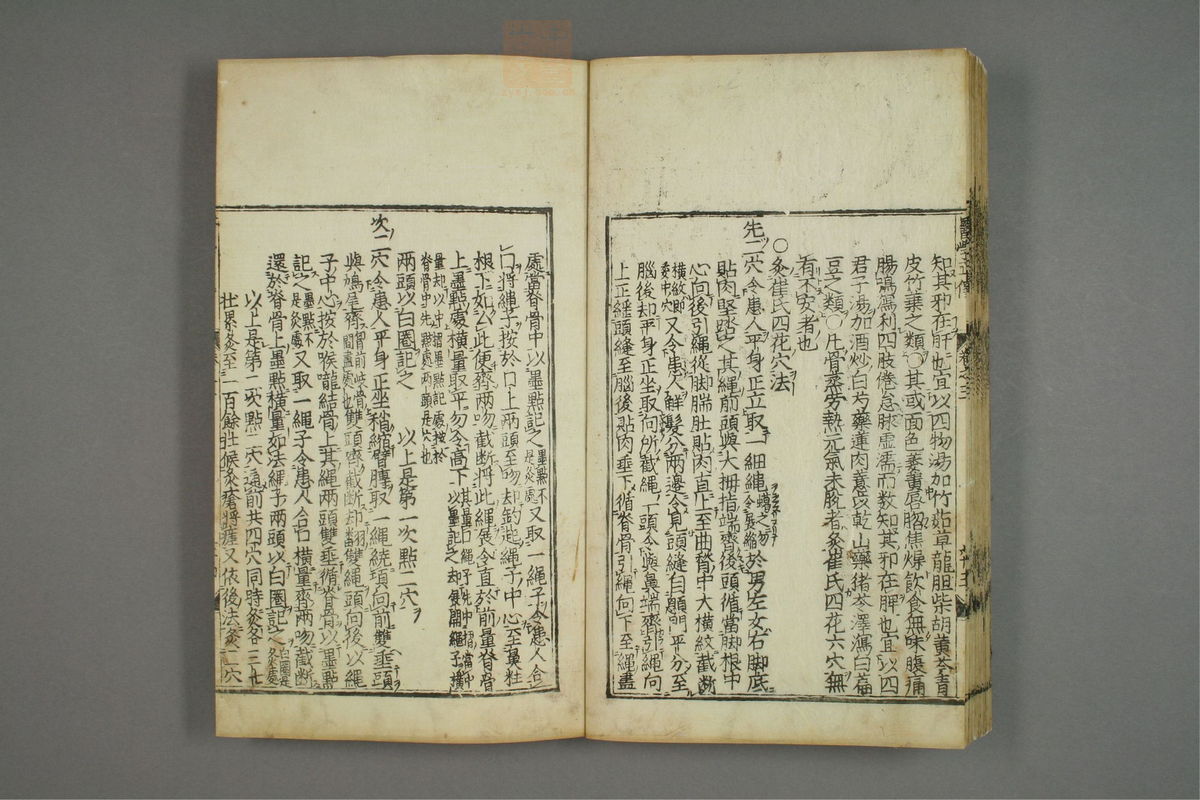 知其邪在肝也宜以四物湯加竹茹草龍胆柴胡黃芩青
皮竹葉之類○其或面色萎黃唇脗焦燥飲食無味腹痛
腸鳴瀉利四肢倦怠脉虛濡而数知其邪在脾也宜以四
君子湯加酒炒白芍藥蓮肉薏苡乾山藥猪苓澤瀉白萹
豆之類○凡骨蒸勞熱元氣未脫者灸崔氏四花六穴無
有不安者也
○灸崔氏四花穴法
先二穴令患人平身正立取一細繩蠟之勿令展縮於男左女右脚底
貼肉堅踏之其繩前頭與大拇指端齊後頭循當脚根中
心向後引繩從脚腨肚貼肉直上至曲䐐中大横紋截断
横紋即委中穴又令患人解髮分兩邊令見頭縫自顖門平分至
腦後却平身正坐取向所截繩一頭令與鼻端齊引繩向
上正經頭縫至腦後貼肉垂下循脊骨引繩向下至繩盡
處當脊骨中以墨點記之墨點不是灸處又取一繩子令患人合
口將繩子按於口上兩頭至吻却鈎起繩子中心至鼻柱
根下如人此便齊兩吻截断將此繩展令直於前量脊骨
上墨點處横量取平勿令高下
兩頭以白圈記之　以上是第一次點二穴
次二穴令患人平身正坐稍縮臂膊取一繩繞項向前雙垂頭
與鳩尾齊雙頭齊截断却翻雙繩頭向後以繩
子中心按於喉嚨結骨上其繩兩頭雙垂循脊骨以墨點
記之墨點不是灸處又取一繩子令患人合口横量齊兩吻截断
還於脊骨上墨點横量如法繩子兩頭以白圈記之白圈是灸處
以上是第二次點二穴通前共四穴同時灸各三七
壮累灸至一百餘壮候灸瘡將瘥又依後法灸二穴